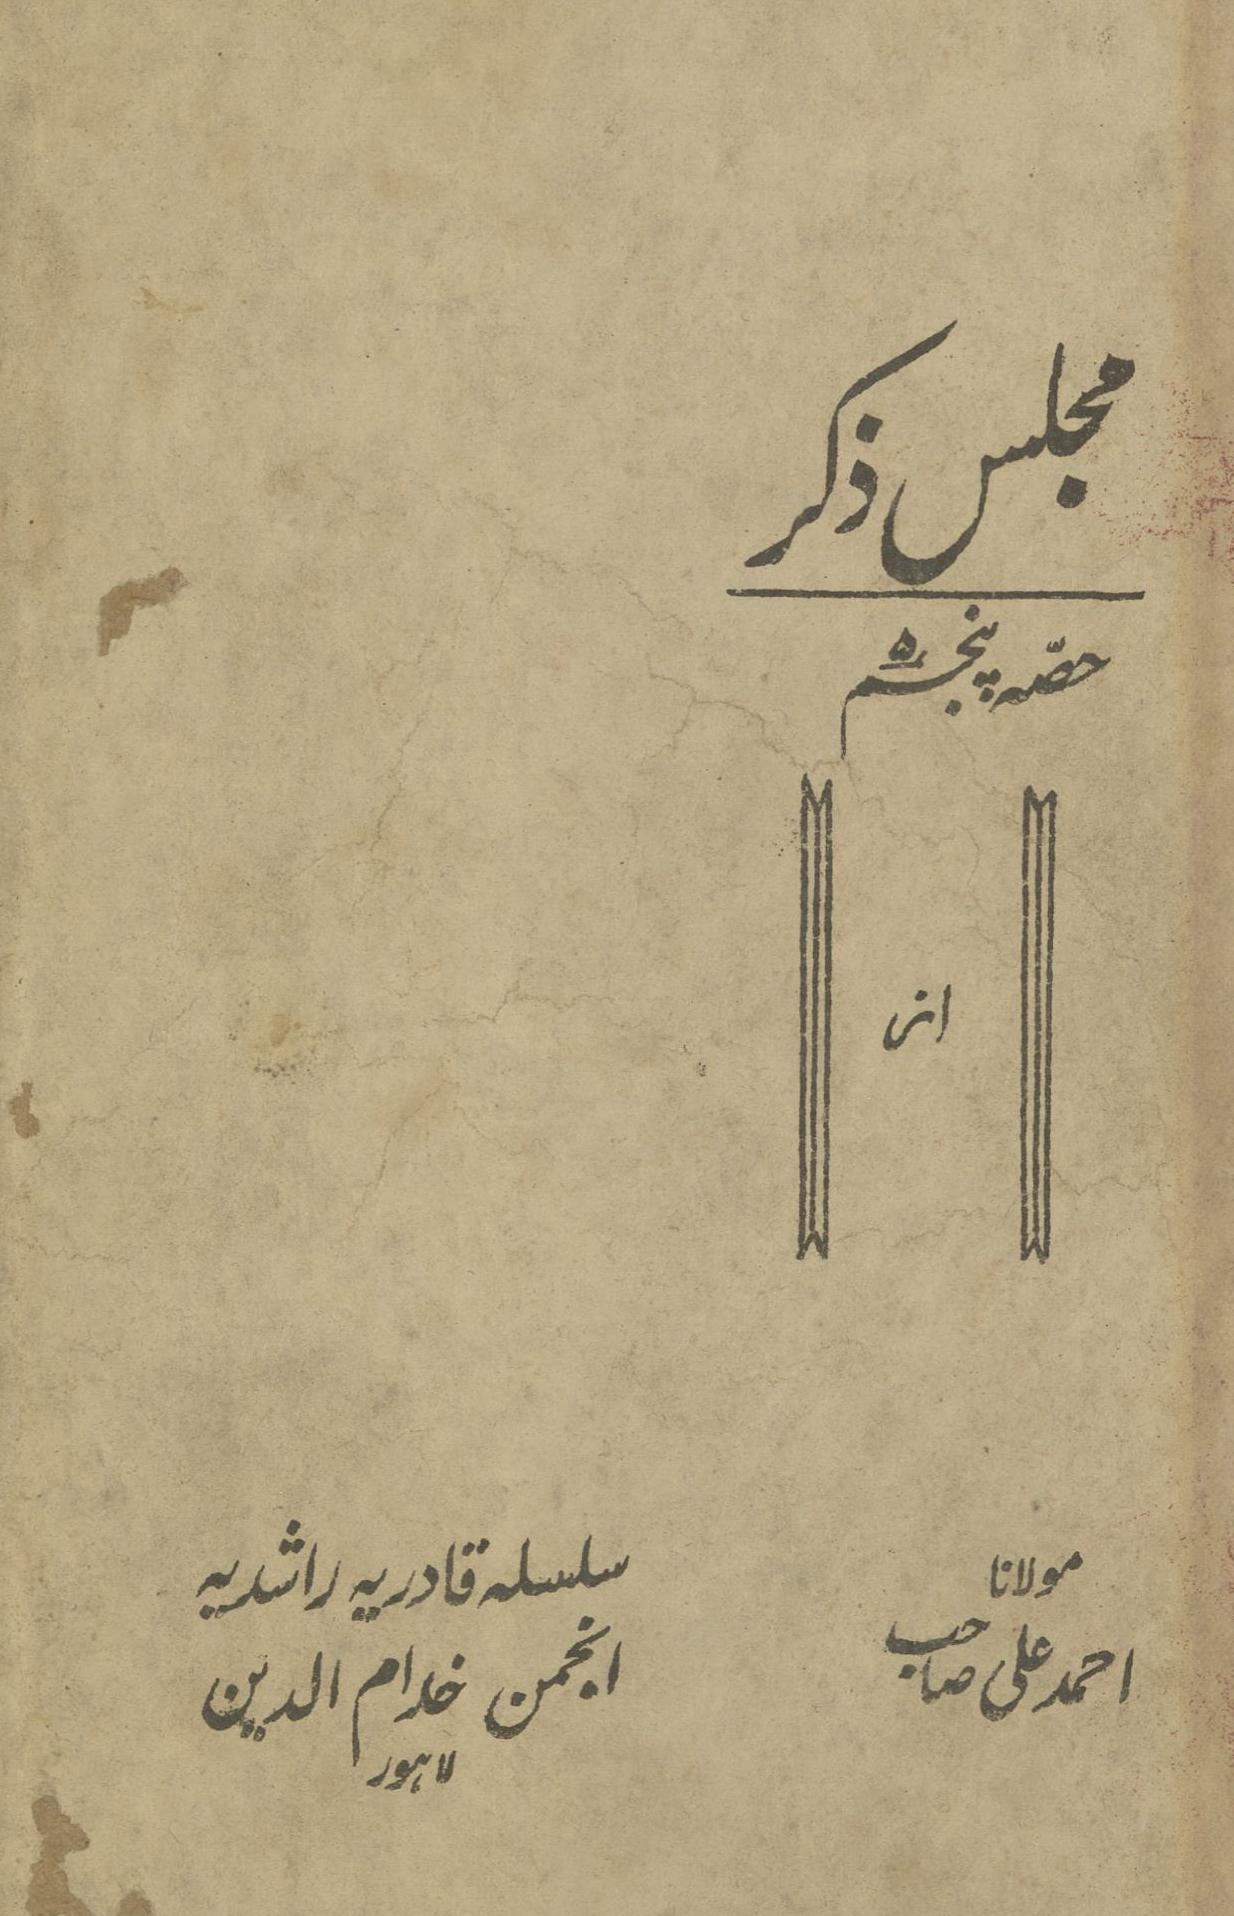 مجلس ذکر
حصّہ پنجم ۵
از
مولانا
احمد علی صاحب
سلسلہ قادریہ راشدیہ
انجمن خدام الدین
لاہور